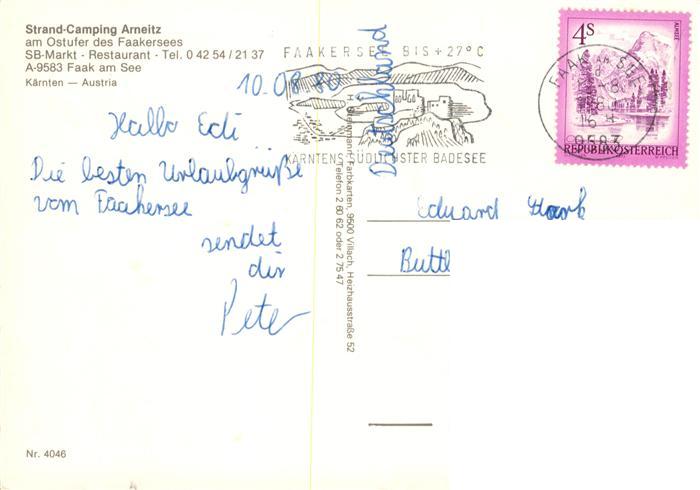 Strand-Camping Arneitz
am Ostufer des Faakersees
SB-Markt - Restaurant - Tel. 0 42 54 / 21 37
A-9583 Faak am See
Kärnten — Austria
10.08.80
Hallo Edi
Die besten Urlaubgrüße
vom Faakersee
sendet
dir
Peter
Nr. 4046
FAAKERSEE BIS +27°C
KÄRNTENS SÜDLICHSTER BADESEE
Deutschland
Farbkarten, 9500 Villach, Heizhausstraße 52
Telefon 2 60 62 oder 2 75 47
4 S
ALMSEE
REPUBLIK ÖSTERREICH
FAAK AM SEE
9583
Eduard
Buttl